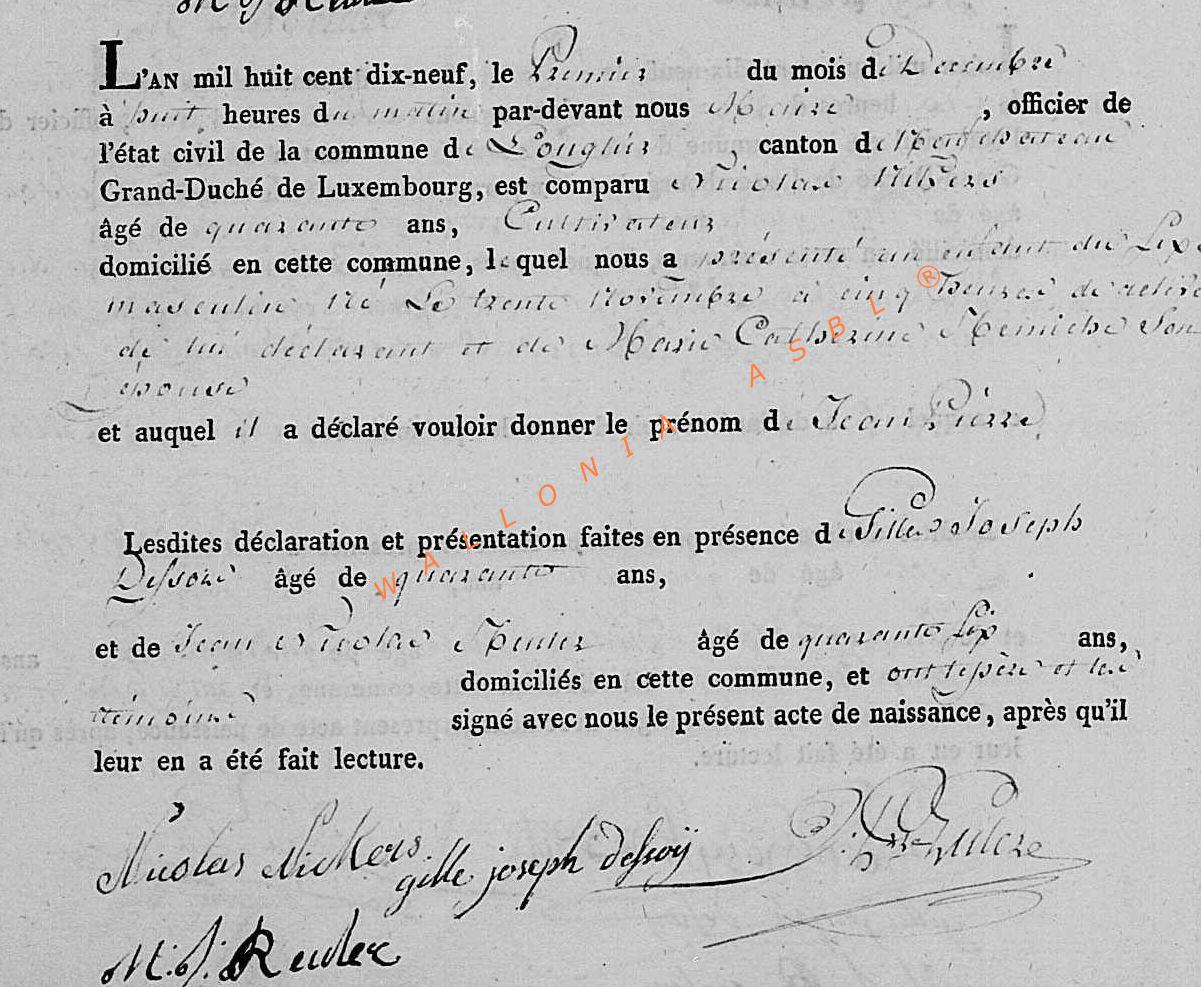 L'AN mil huit cent dix-neuf, le Premier du mois de Decembre
à huit heures du matin par-devant nous Maire, officier de
l'état civil de la commune de Longlier, canton de
Grand-Duché de Luxembourg, est comparu Nicolas Nikers
âgé de quarante ans, Cultivateur
domicilié en cette commune, lequel nous a présenté un enfant du Sexe
masculin né Le trente Novembre à cinq heures
de lui déclarant et de Marie Catherine Son
epouse
et auquel il a déclaré vouloir donner le prénom de Jean Pierre
Lesdites déclaration et présentation faites en présence de Gille Joseph
âgé de quarante ans,
et de Jean Nicolas âgé de quarante Six ans,
domiciliés en cette commune, et ont le père et les
témoins signé avec nous le présent acte de naissance, après qu'il
leur en a été fait lecture.
Nicolas Nickers. gille joseph dessoÿ
WALLONIA ASBL ®